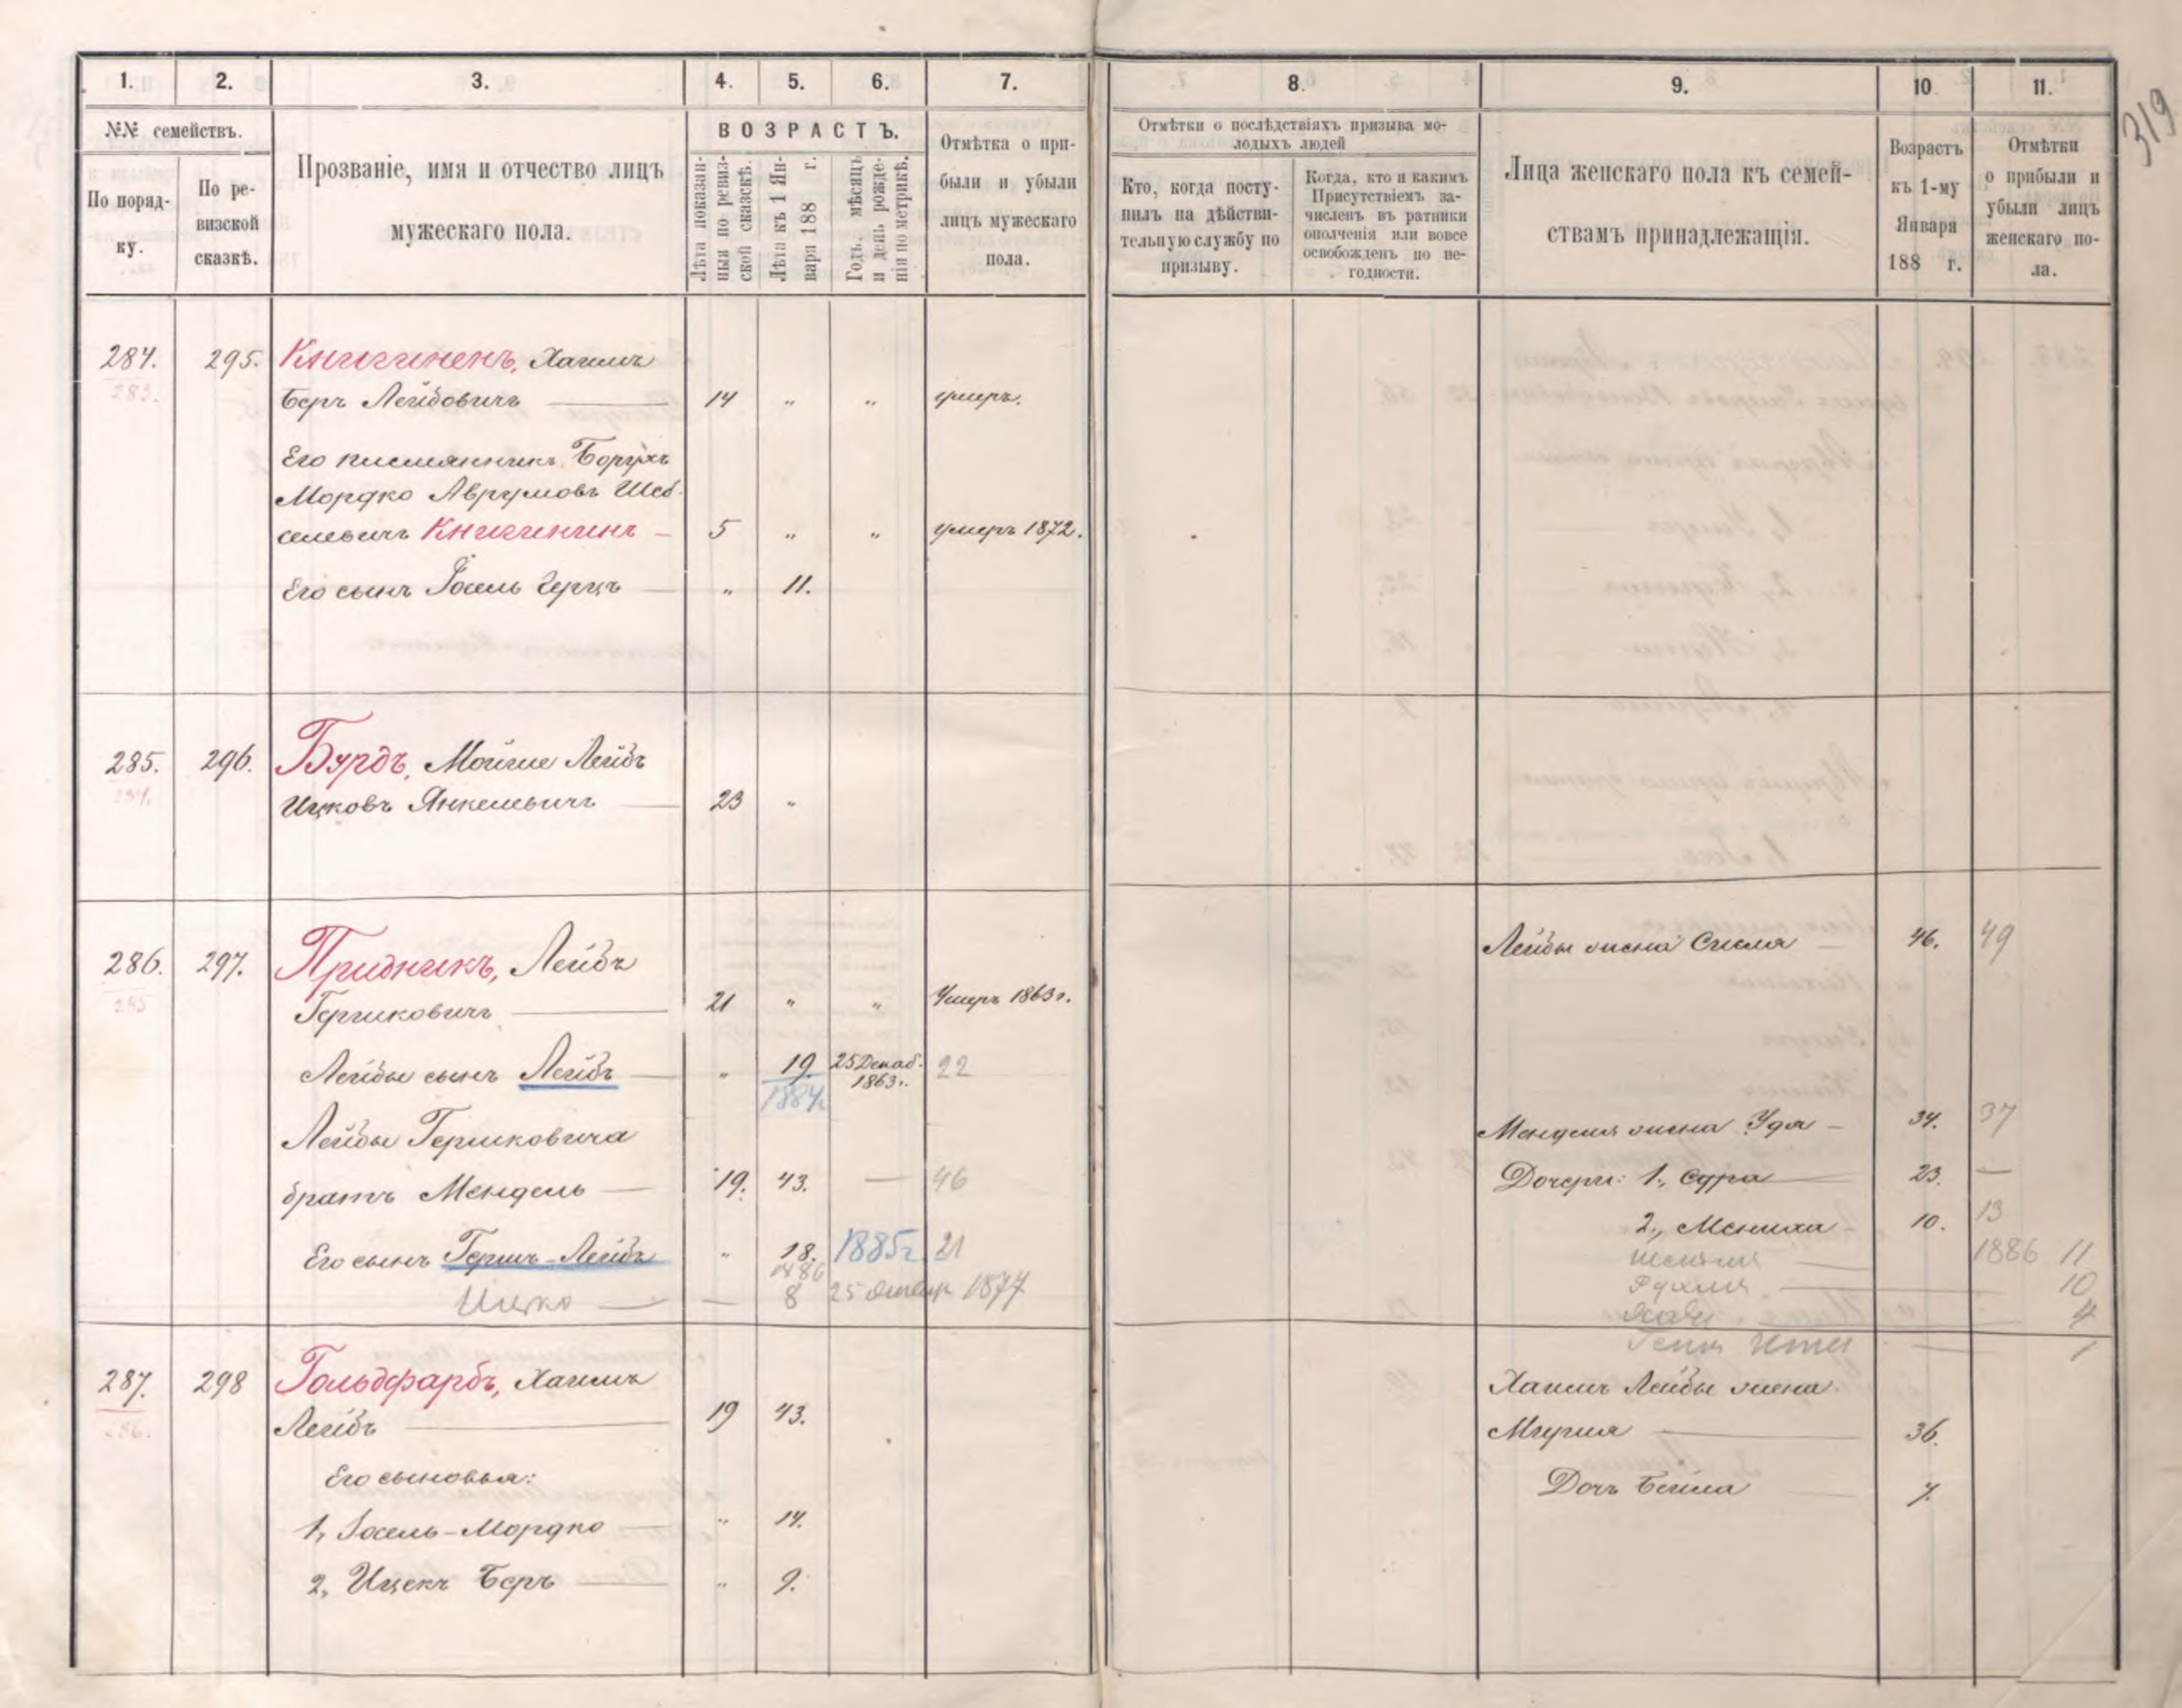 319
1. 2. 3. 4. 5. 6. 7. 8. 9. 10 11.
№№ семействъ.
По поряд-
ку.
По ре-
визской
сказкѣ.
Прозваніе, имя и отчество лицъ
мужескаго пола.
ВОЗРАСТЪ.
Лѣта показан-
ныя по ревиз-
ской сказкѣ.
Лѣта къ 1 Ян-
варя 188 г.
Годъ, мѣсяцъ
и день рожде-
нія по метрикѣ.
Отмѣтка о при-
были и убыли
лицъ мужескаго
пола.
Отмѣтки о послѣдствіяхъ призыва мо-
лодыхъ людей
Кто, когда посту-
пилъ на дѣйстви-
тельную службу по
призыву.
Когда, кто и какимъ
Присутствіемъ за-
численъ въ ратники
ополченія или вовсе
освобожденъ по не-
годности.
Лица женскаго пола къ семей-
ствамъ принадлежащія.
Возрастъ
къ 1-му
Января
188 г.
Отмѣтки
о прибыли и
убыли лицъ
женскаго по-
ла.
284. 295. Книгиненъ, Хаимъ
283.
Беръ Лейбовичъ — 14 " " умеръ.
Его племянникъ Борухъ
Мордко Аврумовъ Шеб-
селевичъ Книгининъ — 5 " " умеръ 1872.
Его сынъ Іосель Герцъ — " 11.
285. 296. Бурдъ, Мойше Лейбъ
284.
Ицковъ Янкелевичъ — 23 "
286. 297. Придникъ, Лейбъ
285
Гершковичъ — 21 " " Умеръ 1863 г.
Лейбы сынъ Лейбъ — " 19. 25 Декаб. 22
1863 г.
1884
Лейбы Гершковича
братъ Мендель — 19. 43. — 46
Его сынъ Гершъ-Лейбъ " 18. 1885 г. 21
1886
Ицко — — 8 25 1877
Лейбы жена Сима — 46. 49
Менделя жена Удя — 34. 37
Дочери: 1, Сура — 23. —
2, Мениха — 10. 13
1886 11
— 10
— 4
— 1
287. 298 Гольдфарбъ, Хаимъ
286.
Лейбъ — 19 43.
Его сыновья:
1, Іосель-Мордко — " 14.
2, Ицекъ Беръ — " 9.
Хаимъ Лейбы жена
— 36.
Дочь Бейла — 7.